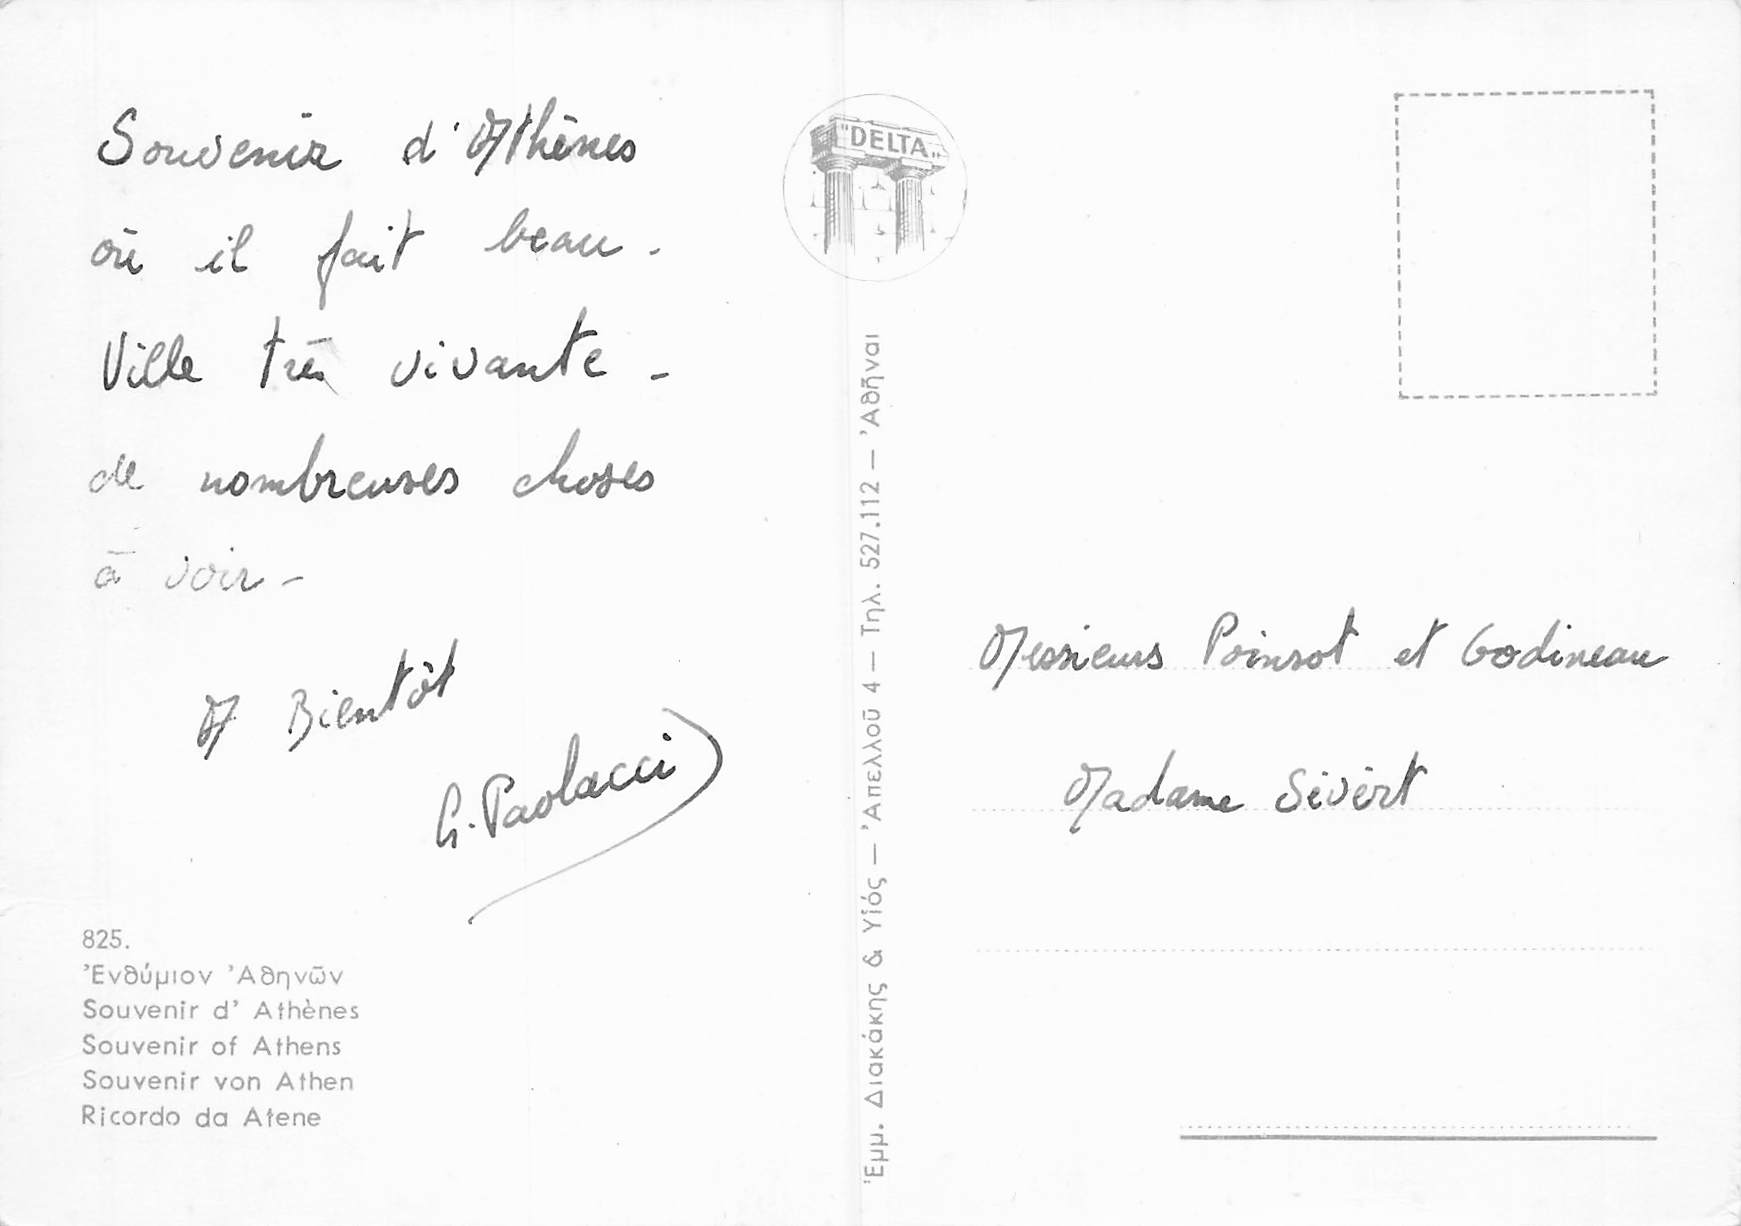 Souvenir d'Athènes
où il fait beau.
Ville très vivante -
de nombreuses choses
à voir -
A Bientôt
G. Paolacci
825.
Ἐνθύμιον Ἀθηνῶν
Souvenir d' Athènes
Souvenir of Athens
Souvenir von Athen
Ricordo da Atene
"DELTA"
Ἐμμ. Διακάκης & Υἱός — Ἀπελλοῦ 4 — Τηλ. 527.112 — Ἀθῆναι
Messieurs Poinsot et Godineau
Madame Sévért